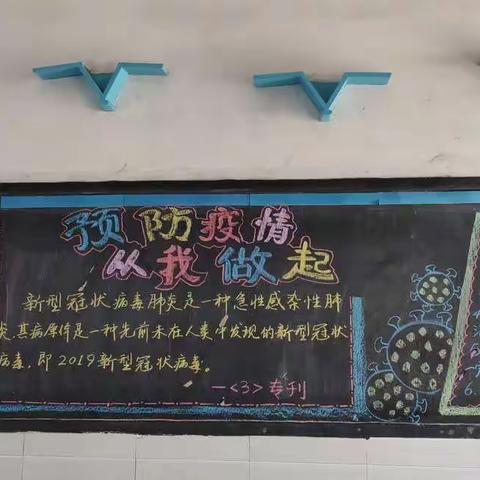 预防疫情
从我做起
新型冠状病毒肺炎是一种急性感染性肺
炎,其病原体是一种先前未在人类中发现的新型冠状
病毒,即2019新型冠状病毒。
一<3>专刊
6.